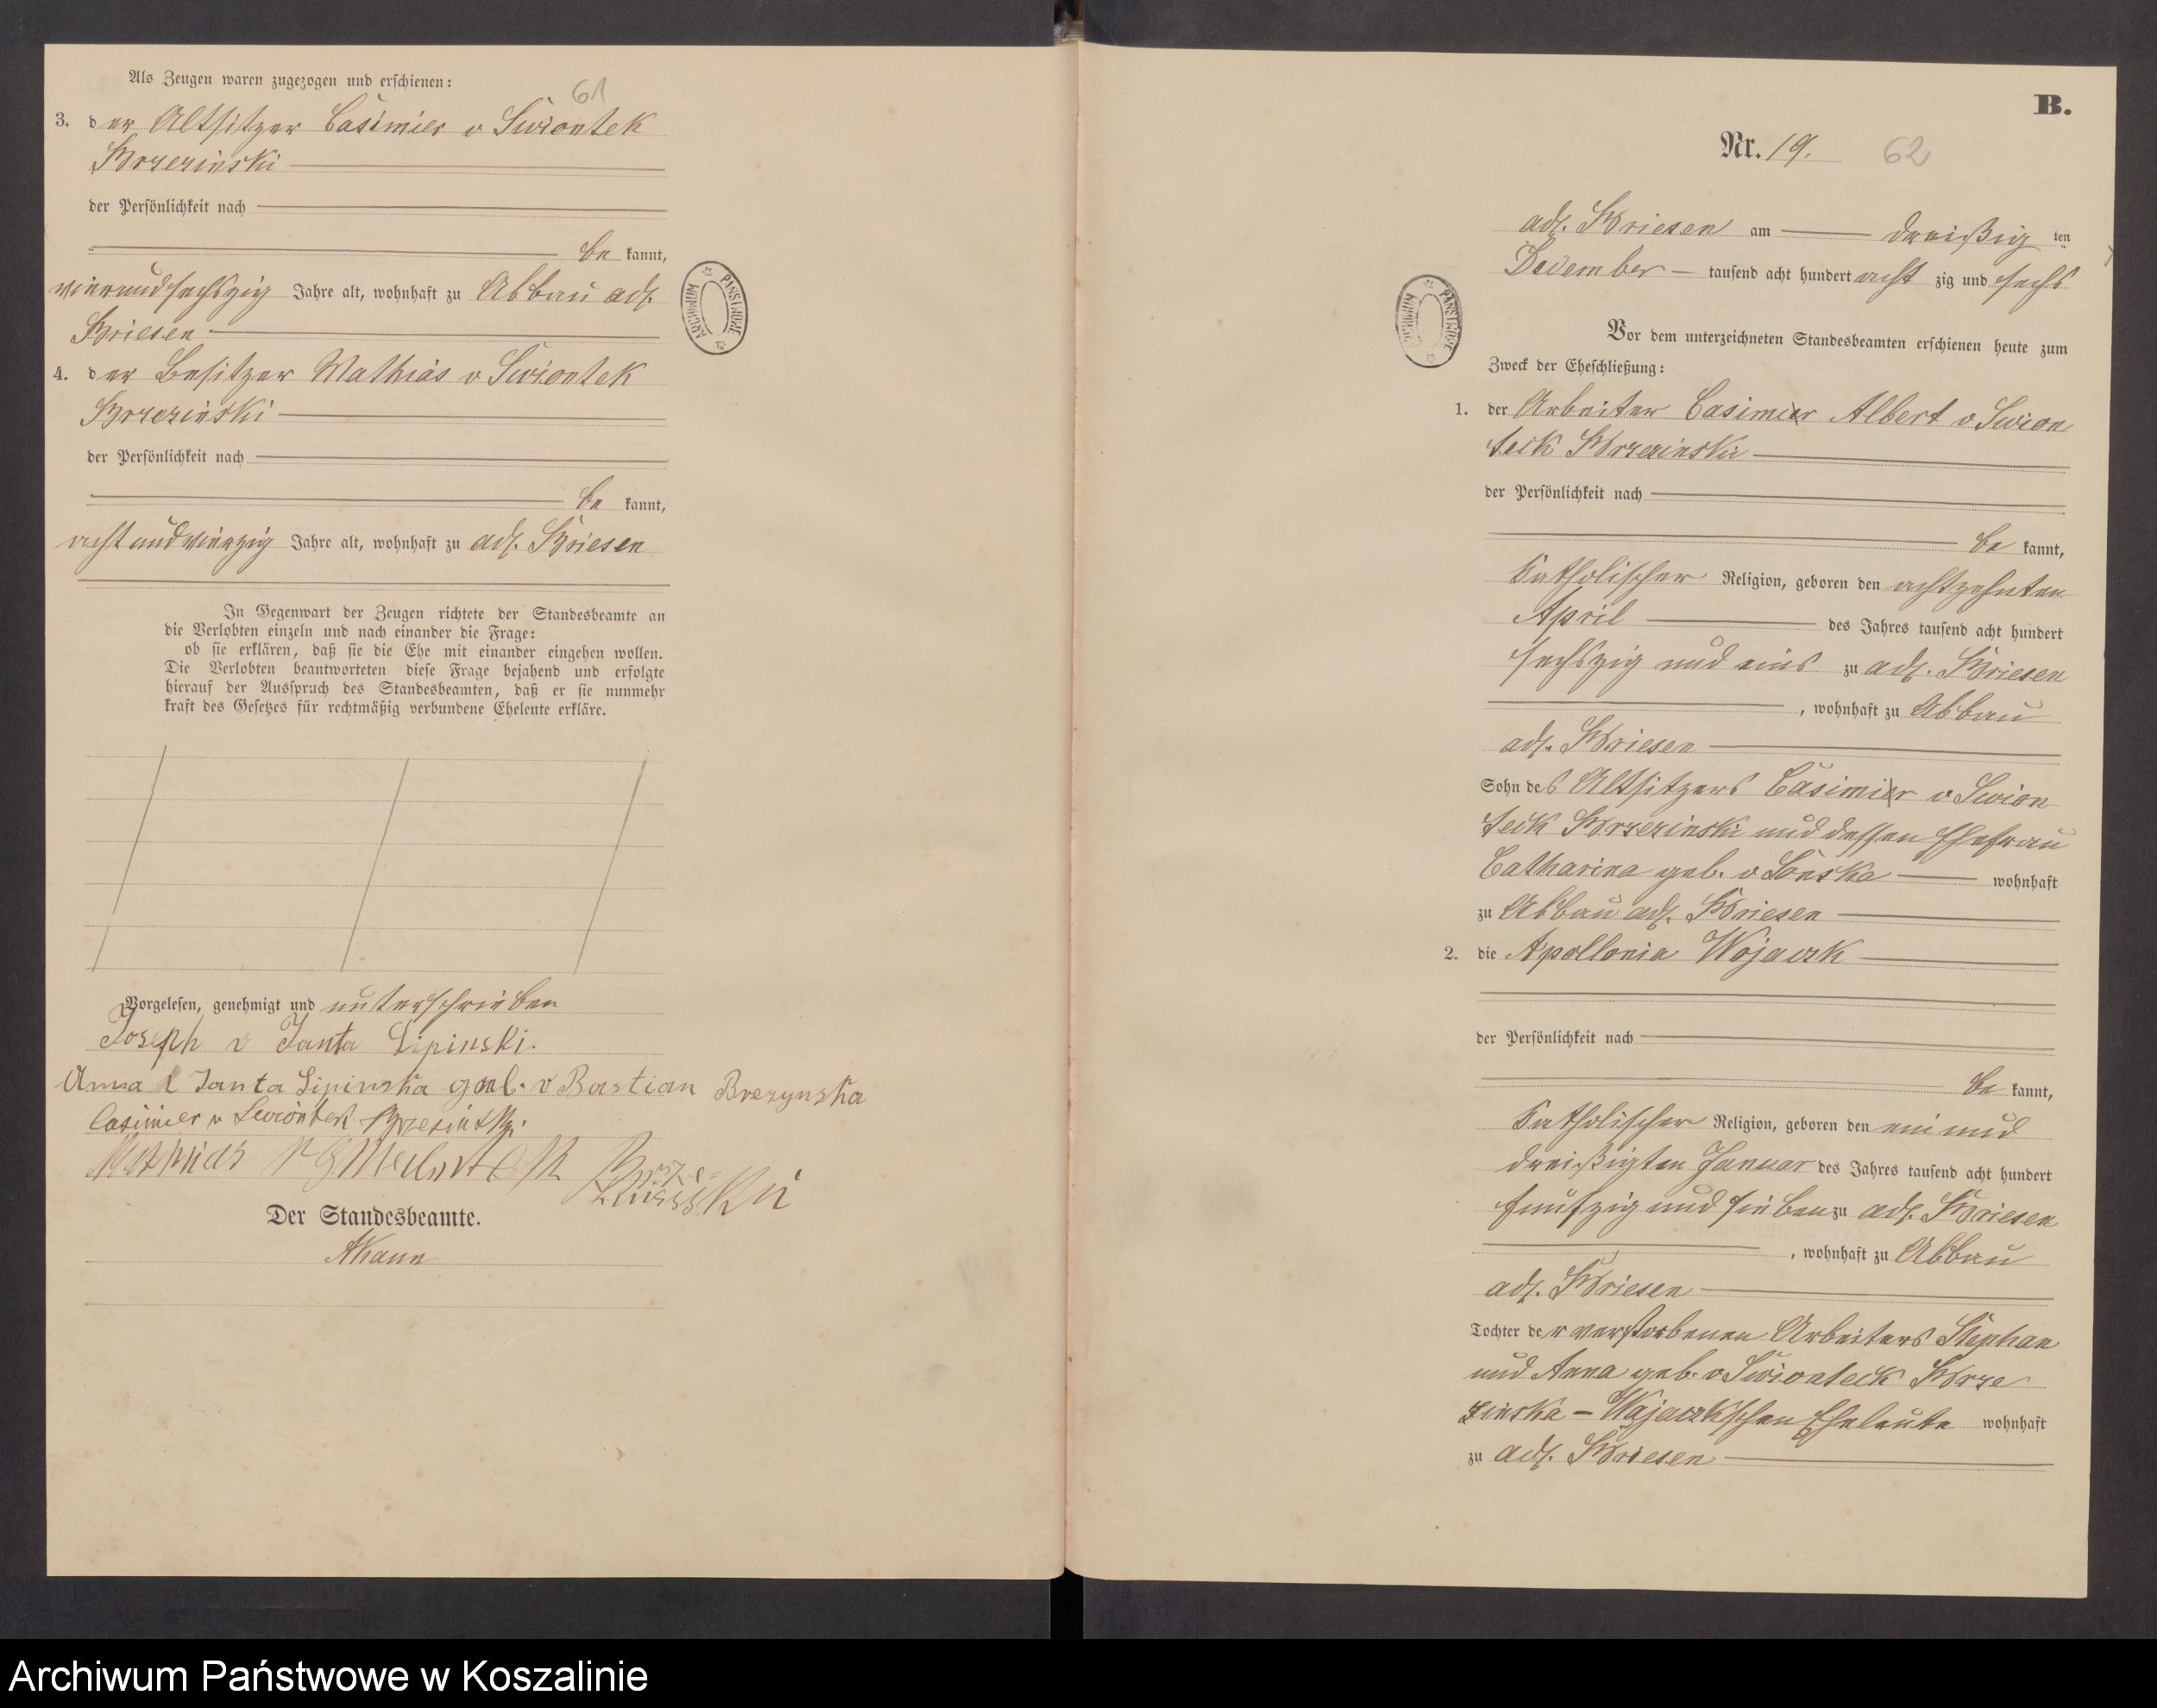 Als Zeugen waren zugezogen und erschienen:
61
3. der Altsitzer Casimier v Swiontek
Brzezinski
der Persönlichkeit nach
be kannt,
vierundsechszig Jahre alt, wohnhaft zu Abbau adl.
Briesen
4. der Besitzer Mathias v Swiontek
Brzezinski
der Persönlichkeit nach
be kannt,
achtundvierzig Jahre alt, wohnhaft zu adl. Briesen
In Gegenwart der Zeugen richtete der Standesbeamte an
die Verlobten einzeln und nach einander die Frage:
ob sie erklären, daß sie die Ehe mit einander eingehen wollen.
Die Verlobten beantworteten diese Frage bejahend und erfolgte
hierauf der Ausspruch des Standesbeamten, daß er sie nunmehr
kraft des Gesetzes für rechtmäßig verbundene Eheleute erkläre.
Vorgelesen, genehmigt und unterschrieben
Joseph v Janta Lipinski.
Anna v Janta Lipinska geb. v Bastian Brezynska
Casimier v Swiontek Brzesinski
Der Standesbeamte.
ARCHIWUM PAŃSTWOWE
B.
Nr. 19. 62
adl. Briesen am dreißig ten
December tausend acht hundert acht zig und sechs
ARCHIWUM PAŃSTWOWE
Vor dem unterzeichneten Standesbeamten erschienen heute zum
Zweck der Eheschließung:
1. der Arbeiter Casimier Albert v Swion
teck Brzezinski
der Persönlichkeit nach
be kannt,
katholischer Religion, geboren den achtzehnten
April des Jahres tausend acht hundert
sechszig und eins zu adl. Briesen
, wohnhaft zu Abbau
adl. Briesen
Sohn des Altsitzers Casimier v Swion
teck Brzezinski und dessen Ehefrau
Catharina geb. v Lonska wohnhaft
zu Abbau adl. Briesen
2. die Apollonia Wojaczk
der Persönlichkeit nach
be kannt,
katholischer Religion, geboren den ein und
dreißigten Januar des Jahres tausend acht hundert
funfzig und sieben zu adl. Briesen
, wohnhaft zu Abbau
adl. Briesen
Tochter der verstorbenen Arbeiters Stephan
und Anna geb. v Swionteck Brze
zinska - Wojaczk'schen Eheleute wohnhaft
zu adl. Briesen
Archiwum Państwowe w Koszalinie